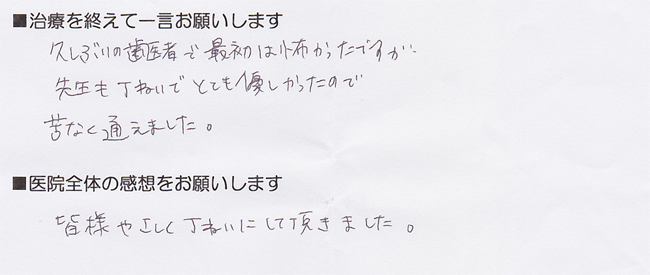 ■治療を終えて一言お願いします
久しぶりの歯医者で最初は怖かったですが
先生も丁ねいでとても優しかったので
苦なく通えました。
■医院全体の感想をお願いします
皆様やさしく丁ねいにして頂きました。